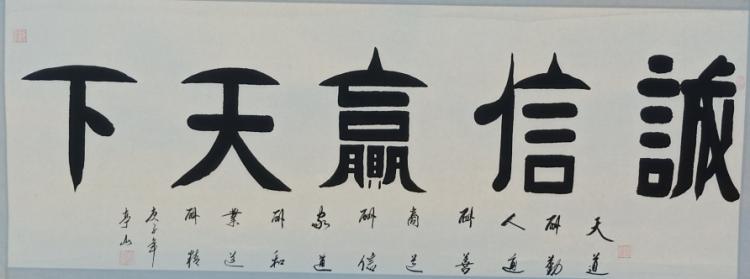 誠信贏天下
天道
酬勤
人道
酬善
商道
酬信
家道
酬和
業道
酬精
庚子年
山